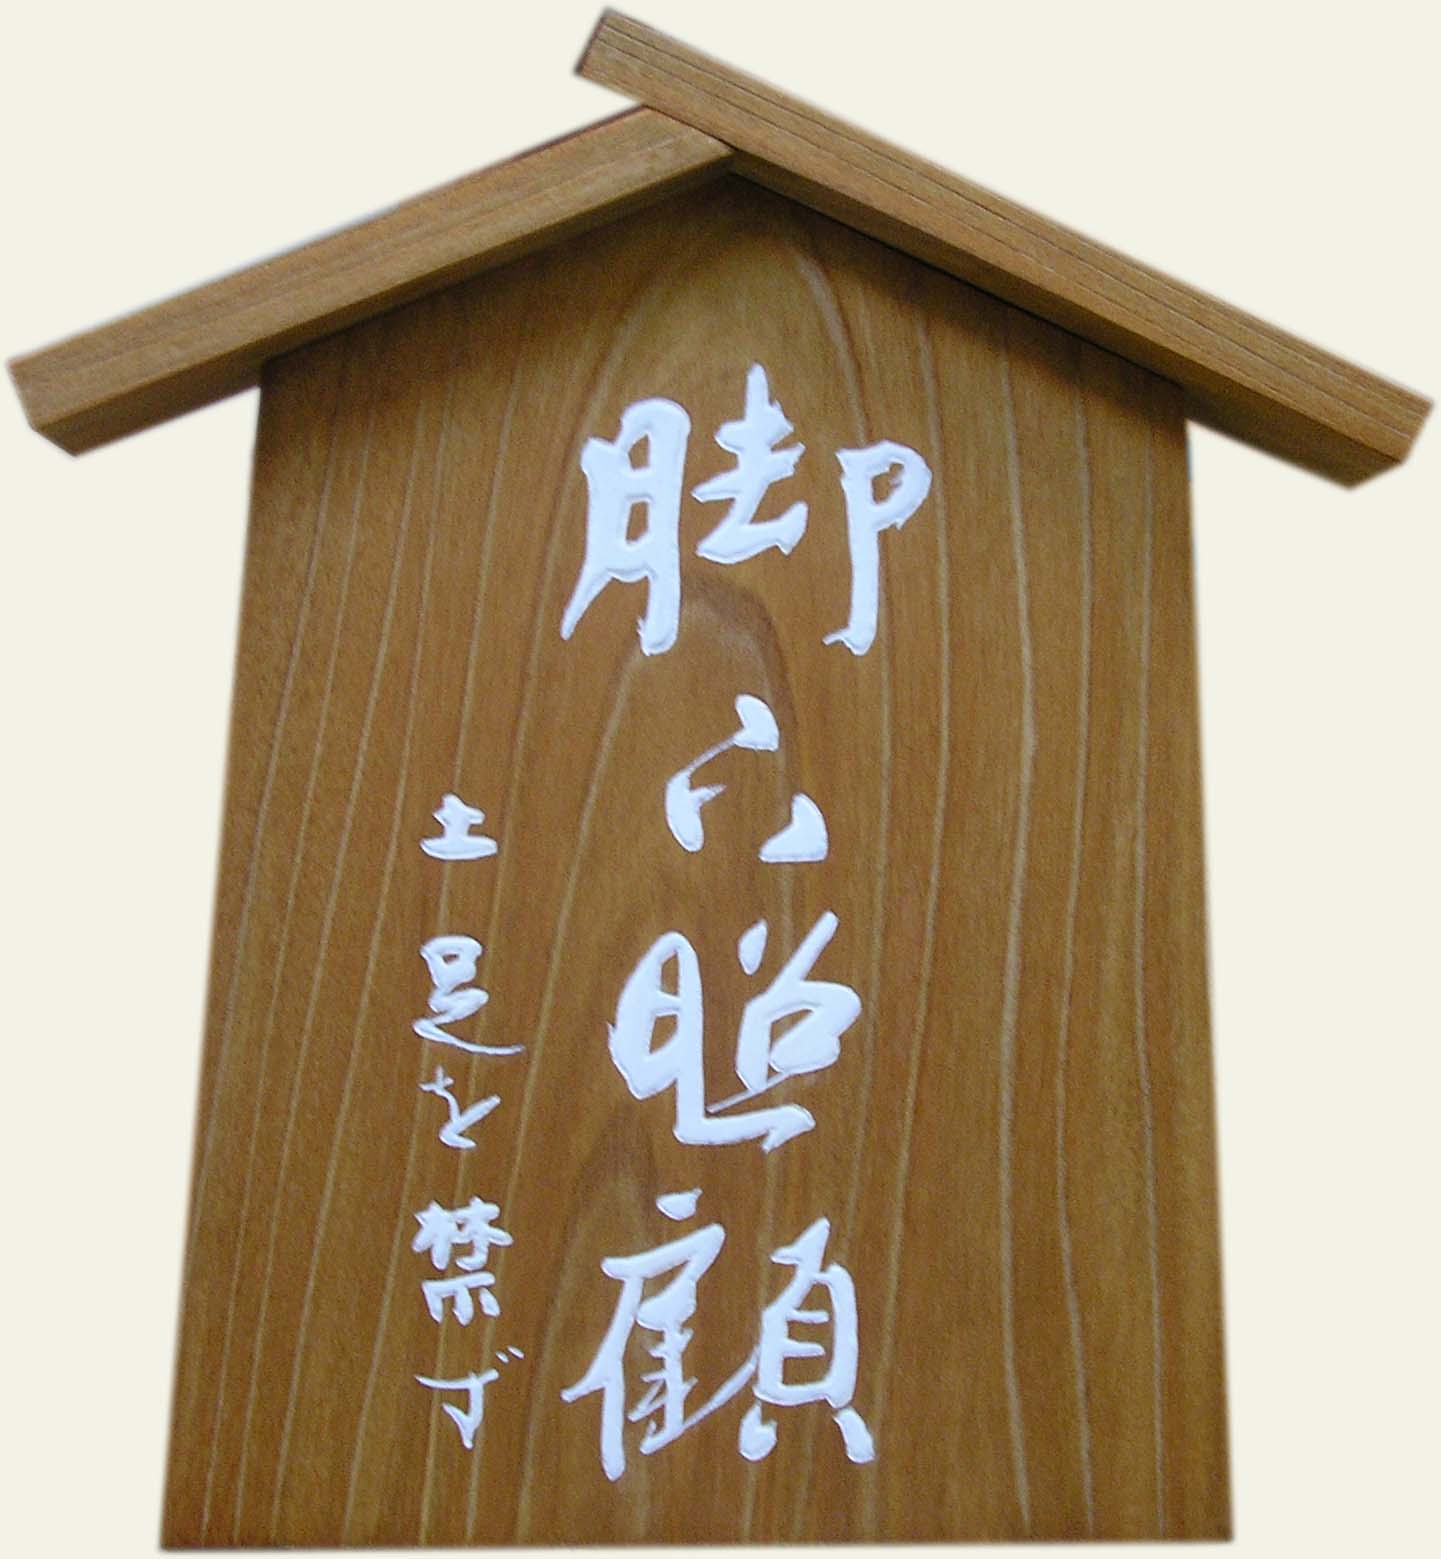 脚下照顧
土足を禁ず